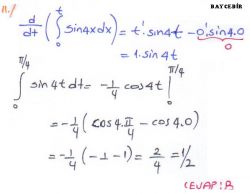 11./
BAYCEBİR
d/dt (∫₀ᵗ sin4xdx) = t'.sin4t - 0'.sin4.0
0
= 1.sin4t
∫₀^π/4 sin4tdt = -1/4 cos4t |₀^π/4
= -1/4 (cos4.π/4 - cos4.0)
= -1/4 (-1-1) = 2/4 = 1/2
CEVAP: B